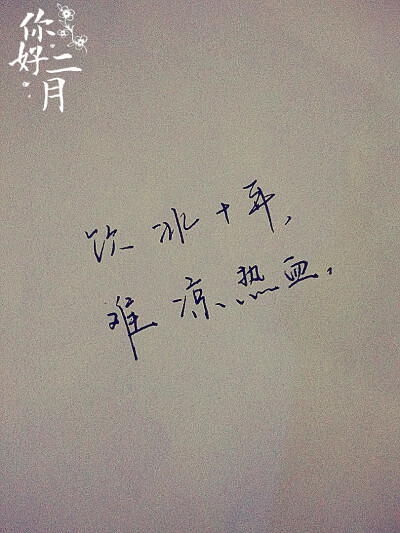 你好二月
饮冰十年，
难凉热血，